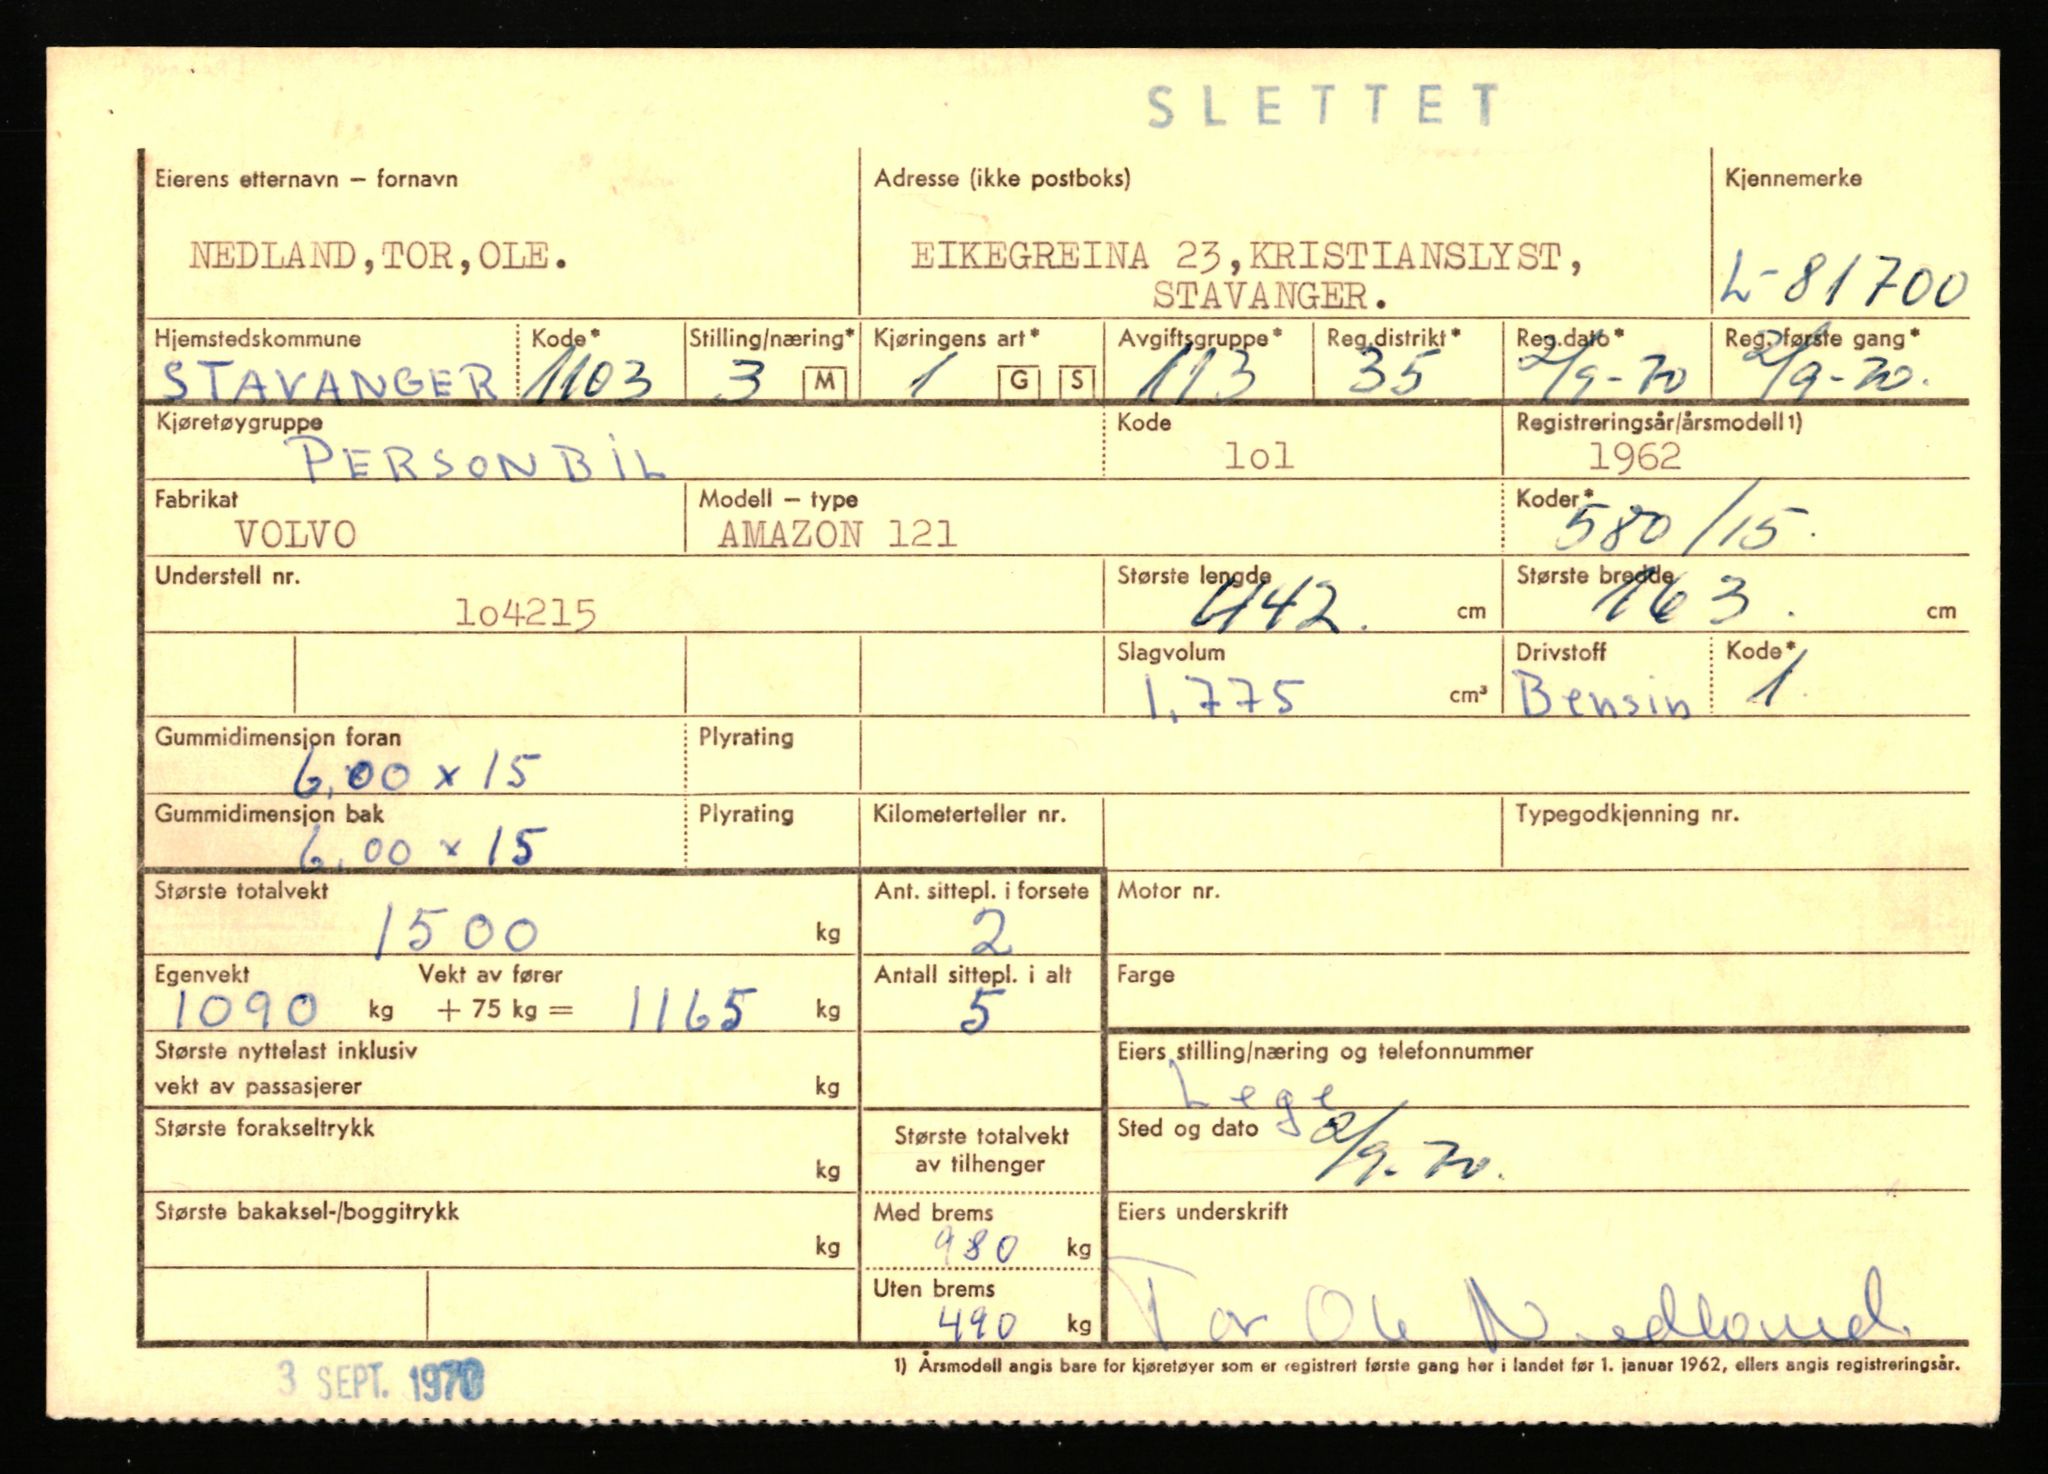 SLETTET
Eierens etternavn – fornavn
Adresse (ikke postboks)
Kjennemerke
NEDLAND,TOR,OLE.
EIKEGREINA 23,KRISTIANSLYST,
STAVANGER.
L-81700
Hjemstedskommune Kode* Stilling/næring* Kjøringens art* Avgiftsgruppe* Reg.distrikt* Reg.dato* Reg. første gang*
STAVANGER 1103 3 M 1 G S 113 35 2/9-70 2/9-70.
Kjøretøygruppe Kode Registreringsår/årsmodell 1)
PERSONBIL lol 1962
Fabrikat Modell – type Koder*
VOLVO AMAZON 121 580/15.
Understell nr. Største lengde Største bredde
lo4215 442. cm 163. cm
Slagvolum Drivstoff Kode*
1,775 cm³ Bensin 1
Gummidimensjon foran Plyrating
6,00 x 15
Gummidimensjon bak Plyrating Kilometerteller nr. Typegodkjenning nr.
6,00 x 15
Største totalvekt Ant. sittepl. i forsete Motor nr.
1500 kg 2
Egenvekt Vekt av fører Antall sittepl. i alt Farge
1090 kg + 75 kg = 1165 kg 5
Største nyttelast inklusiv
vekt av passasjerer kg
Eiers stilling/næring og telefonnummer
Lege
Største forakseltrykk
kg
Største totalvekt
av tilhenger
Sted og dato 2/9-70.
Største bakaksel-/boggitrykk
kg
Med brems
980 kg
Uten brems
490 kg
Eiers underskrift
Tor Ole Nedland.
1) Årsmodell angis bare for kjøretøyer som er registrert første gang her i landet før 1. januar 1962, ellers angis registreringsår.
3 SEPT. 1970